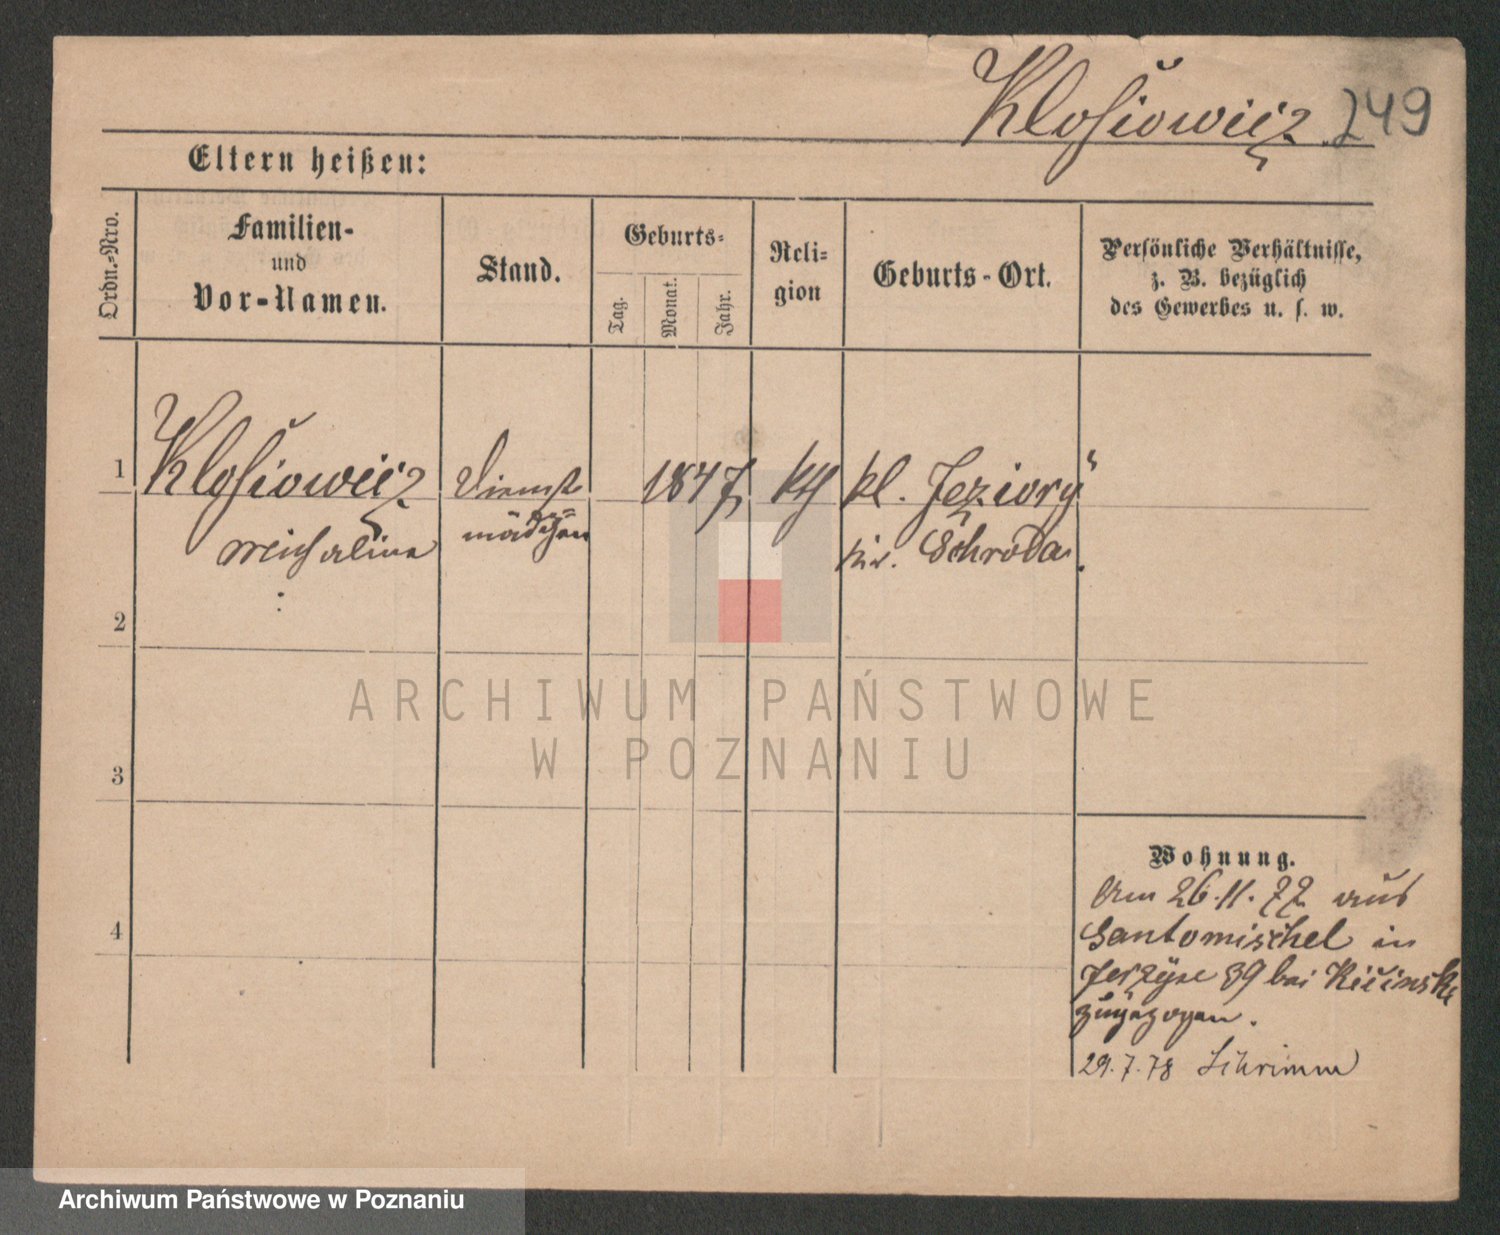 Klosiowicz 249
Eltern heißen:
Ordn.-Nro.
Familien-
und
Vor-Namen.
Stand.
Geburts-
Tag.
Monat.
Jahr.
Reli-
gion
Geburts-Ort.
Persönliche Verhältnisse,
z. B. bezüglich
des Gewerbes u. s. w.
1 Klosiowicz Dienst 1847 kth kl. Jeziory
Michalina mädchen Kr. Schroda.
2
3
4
Wohnung.
Am 26.11.77 aus
Santomischel in
Jerzyce 39 bei
zugezogen.
29.7.78 Schrimm
ARCHIWUM PAŃSTWOWE
W POZNANIU
Archiwum Państwowe w Poznaniu